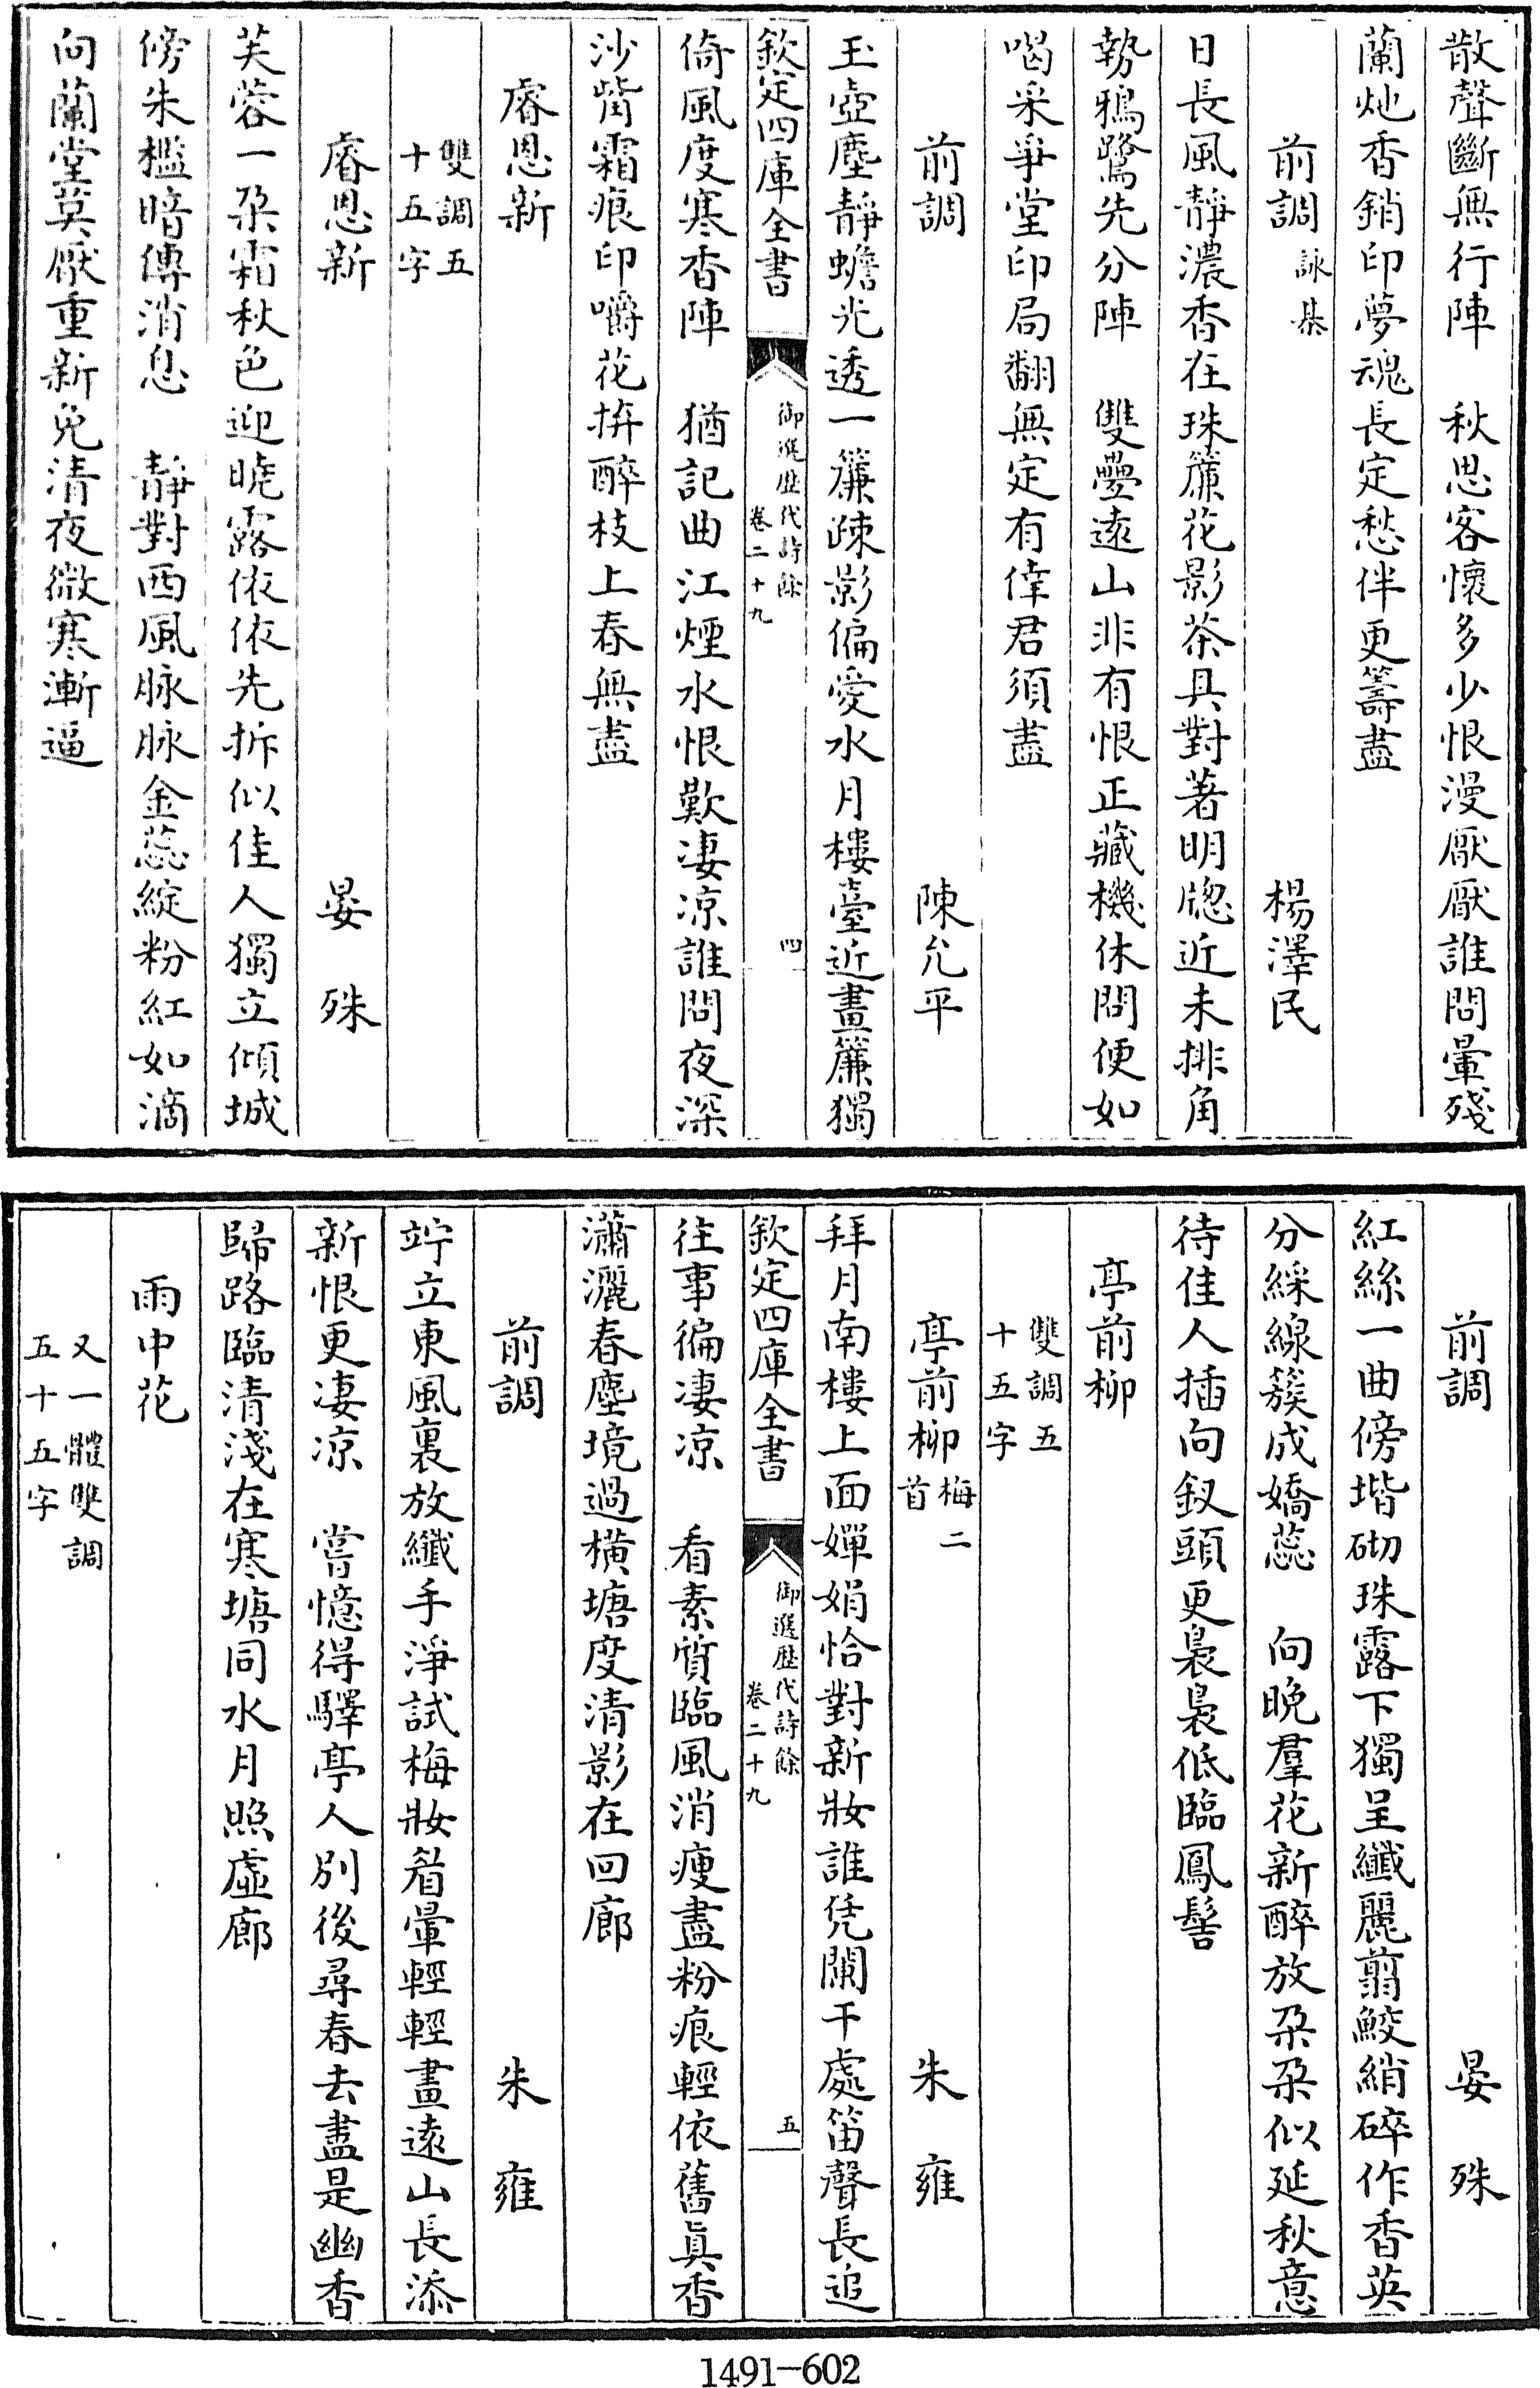 散聲斷無行陣　秋思客懷多少恨漫厭厭誰問暈殘
蘭灺香銷印夢魂長定愁伴更籌盡
前調詠棊　楊澤民
日長風靜濃香在珠簾花影茶具對著明牕近未排角
勢鴉鷺先分陣　雙疊遠山非有恨正藏機休問便如
喝采爭堂印局翻無定有倖君須盡
前調　陳允平
玉壺塵靜蟾光透一簾疎影偏愛水月樓臺近畫簾獨
欽定四庫全書　御選歷代詩餘　卷二十九　四
倚風度寒香陣　猶記曲江煙水恨歎凄凉誰問夜深
沙觜霜痕印嚼花拚醉枝上春無盡
睿恩新
雙調五
十五字
睿恩新　晏殊
芙蓉一朶霜秋色迎曉露依依先拆似佳人獨立傾城
傍朱檻暗傳消息　靜對西風脉脉金蕊綻粉紅如滴
向蘭堂莫厭重新免清夜微寒漸逼
前調　晏殊
紅絲一曲傍堦砌珠露下獨呈纖麗翦鮫綃碎作香英
分綵線簇成嬌蕊　向晚羣花新醉放朶朶似延秋意
待佳人插向釵頭更裊裊低臨鳳髻
亭前柳
雙調五
十五字
亭前柳梅二首　朱雍
拜月南樓上面嬋娟恰對新妝誰凭闌干處笛聲長追
欽定四庫全書　御選歷代詩餘　卷二十九　五
往事徧凄凉　看素質臨風消瘦盡粉痕輕依舊眞香
瀟灑春塵境過橫塘度清影在回廊
前調　朱雍
竚立東風裏放纖手淨試梅妝睂暈輕輕畫遠山長添
新恨更凄凉　嘗憶得驛亭人別後尋春去盡是幽香
歸路臨清淺在寒塘同水月照虛廊
雨中花
又一體雙調
五十五字
1491-602